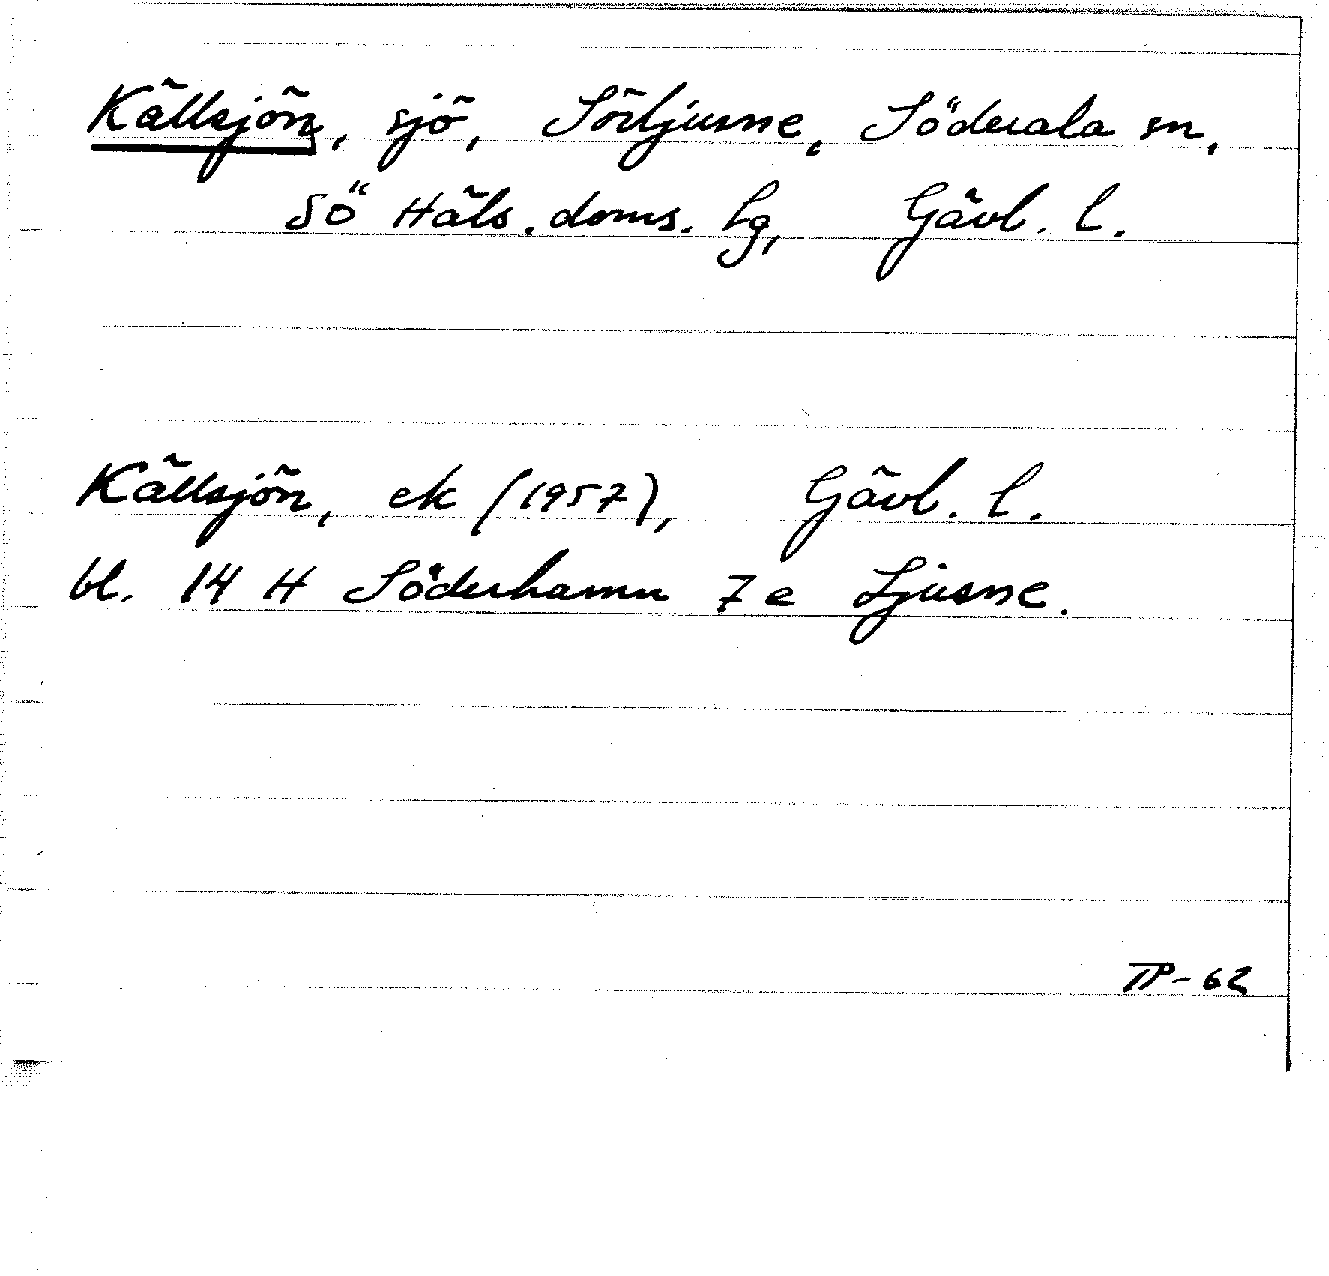 Källsjön, sjö, Sörljusne, Söderala sn,
Sö Häls. doms. lg, Gävl. l.
Källsjön, ek (1957), Gävl. l.
bl. 14 H Söderhamn 7 e Ljusne.
TP-62